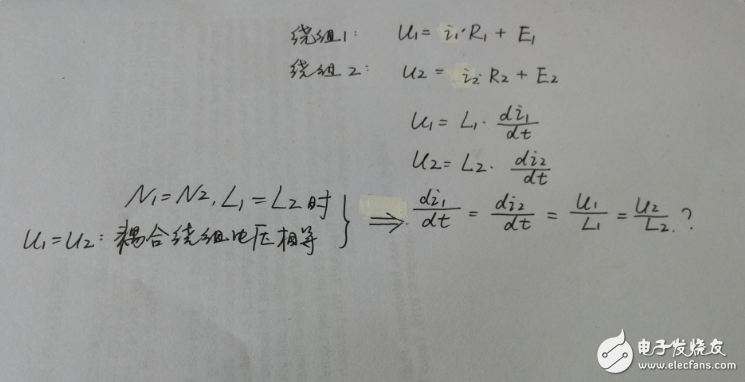 绕组1: U₁= i₁·R₁ + E₁
绕组2: U₂= i₂·R₂ + E₂
U₁= L₁· di₁/dt
U₂= L₂· di₂/dt
N₁=N₂, L₁=L₂时
U₁=U₂: 耦合绕组电压相等 } ⇒ di₁/dt = di₂/dt = U₁/L₁ = U₂/L₂ ?
电子发烧友
www.elecfans.com